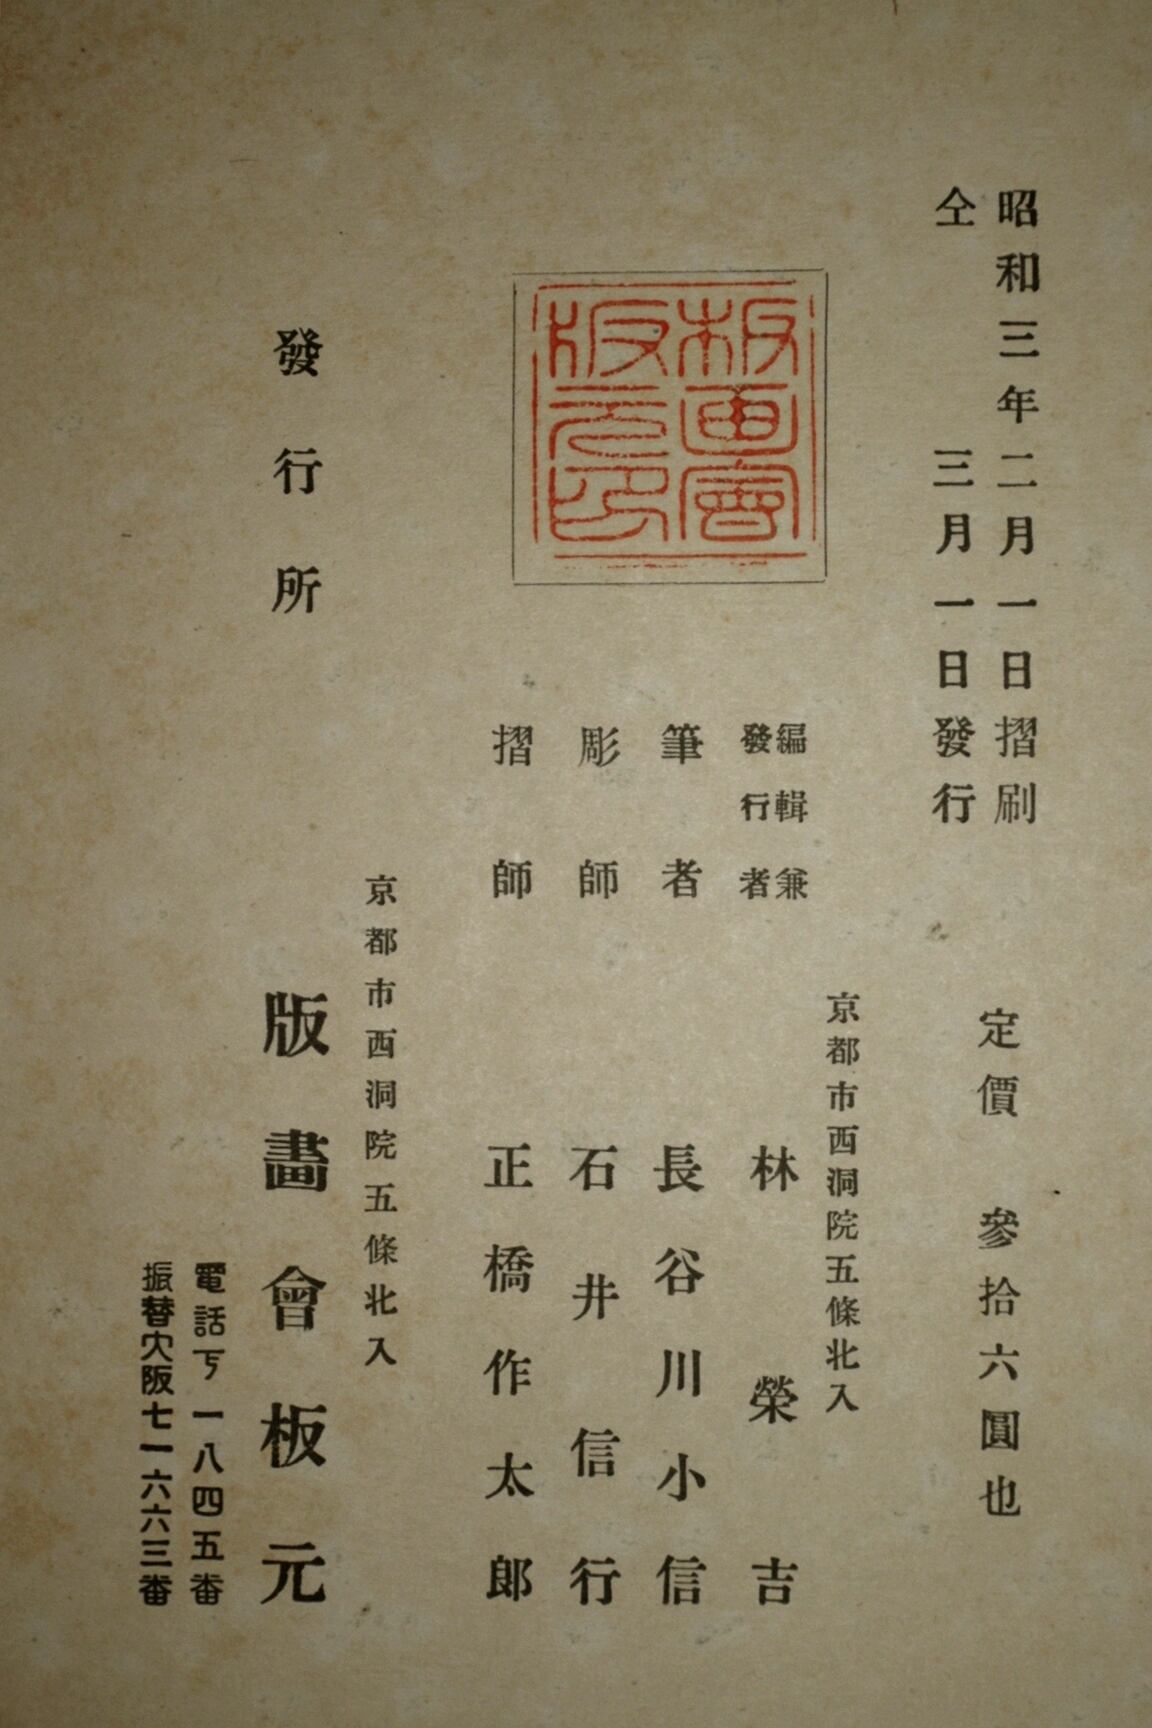 昭和三年二月一日摺刷
仝三月一日發行
定價 參拾六圓也
板画會
版元印
京都市西洞院五條北入
編輯兼
發行者
林榮吉
筆者 長谷川小信
彫師 石井信行
摺師 正橋作太郎
京都市西洞院五條北入
發行所 版畫會板元
電話下一八四五番
振替大阪七一六六三番